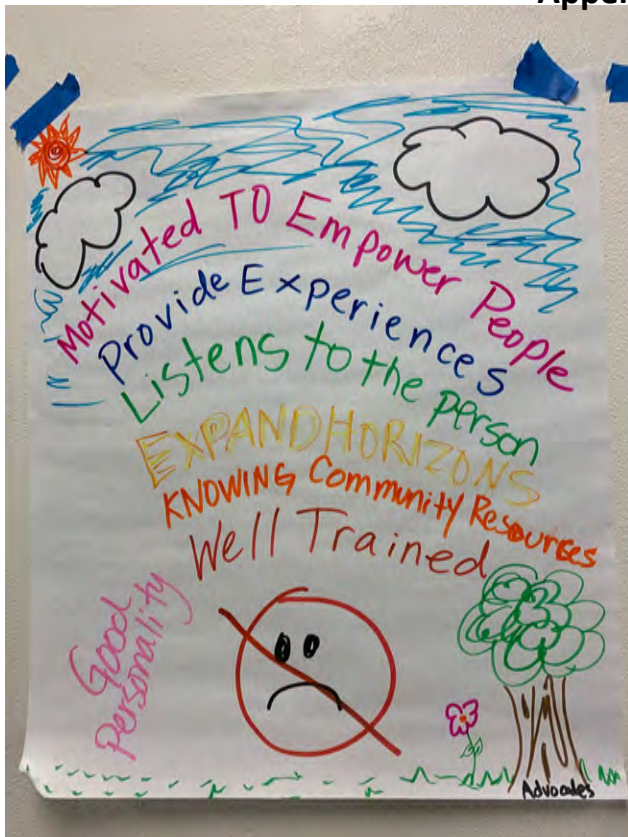 Appen
Motivated TO Empower People
Provide Experiences
Listens to the person
EXPAND HORIZONS
KNOWING Community Resources
Well Trained
Good
Personality
Advocates